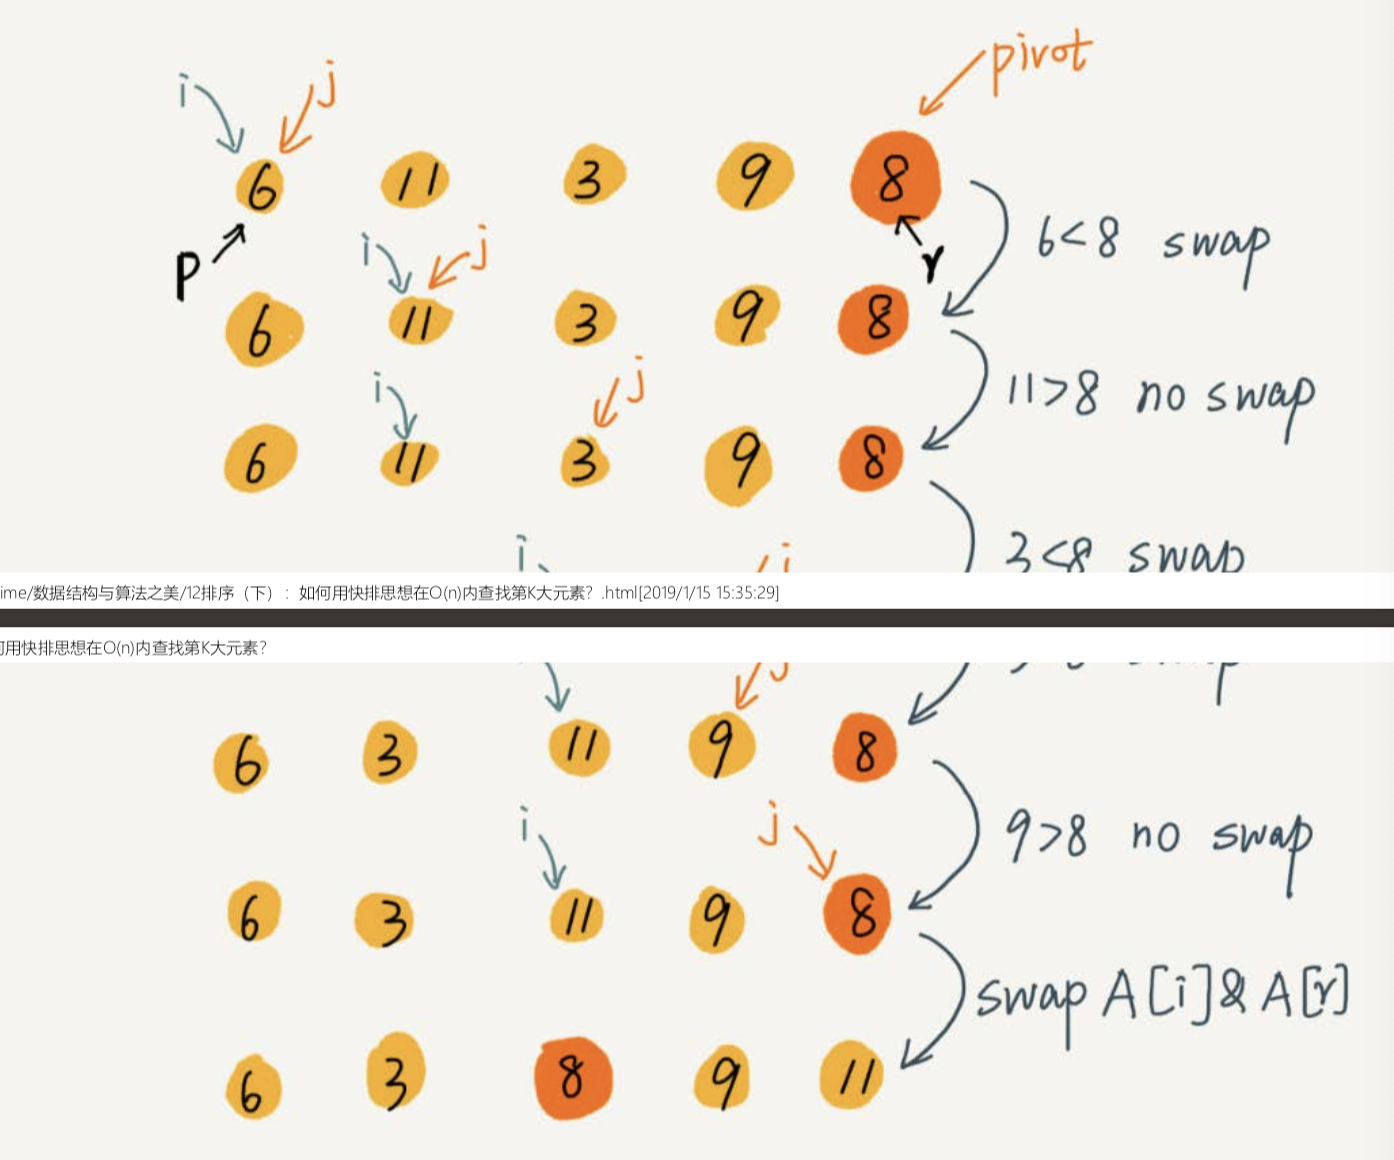 pivot
i j
6 11 3 9 8
p r
6<8 swap
i j
6 11 3 9 8
11>8 no swap
i j
6 11 3 9 8
3<8 swap
i j
ime/数据结构与算法之美/12排序（下）：如何用快排思想在O(n)内查找第K大元素？.html[2019/1/15 15:35:29]
何用快排思想在O(n)内查找第K大元素？
6 3 11 9 8
9>8 no swap
i j
6 3 11 9 8
swap A[i]&A[r]
6 3 8 9 11